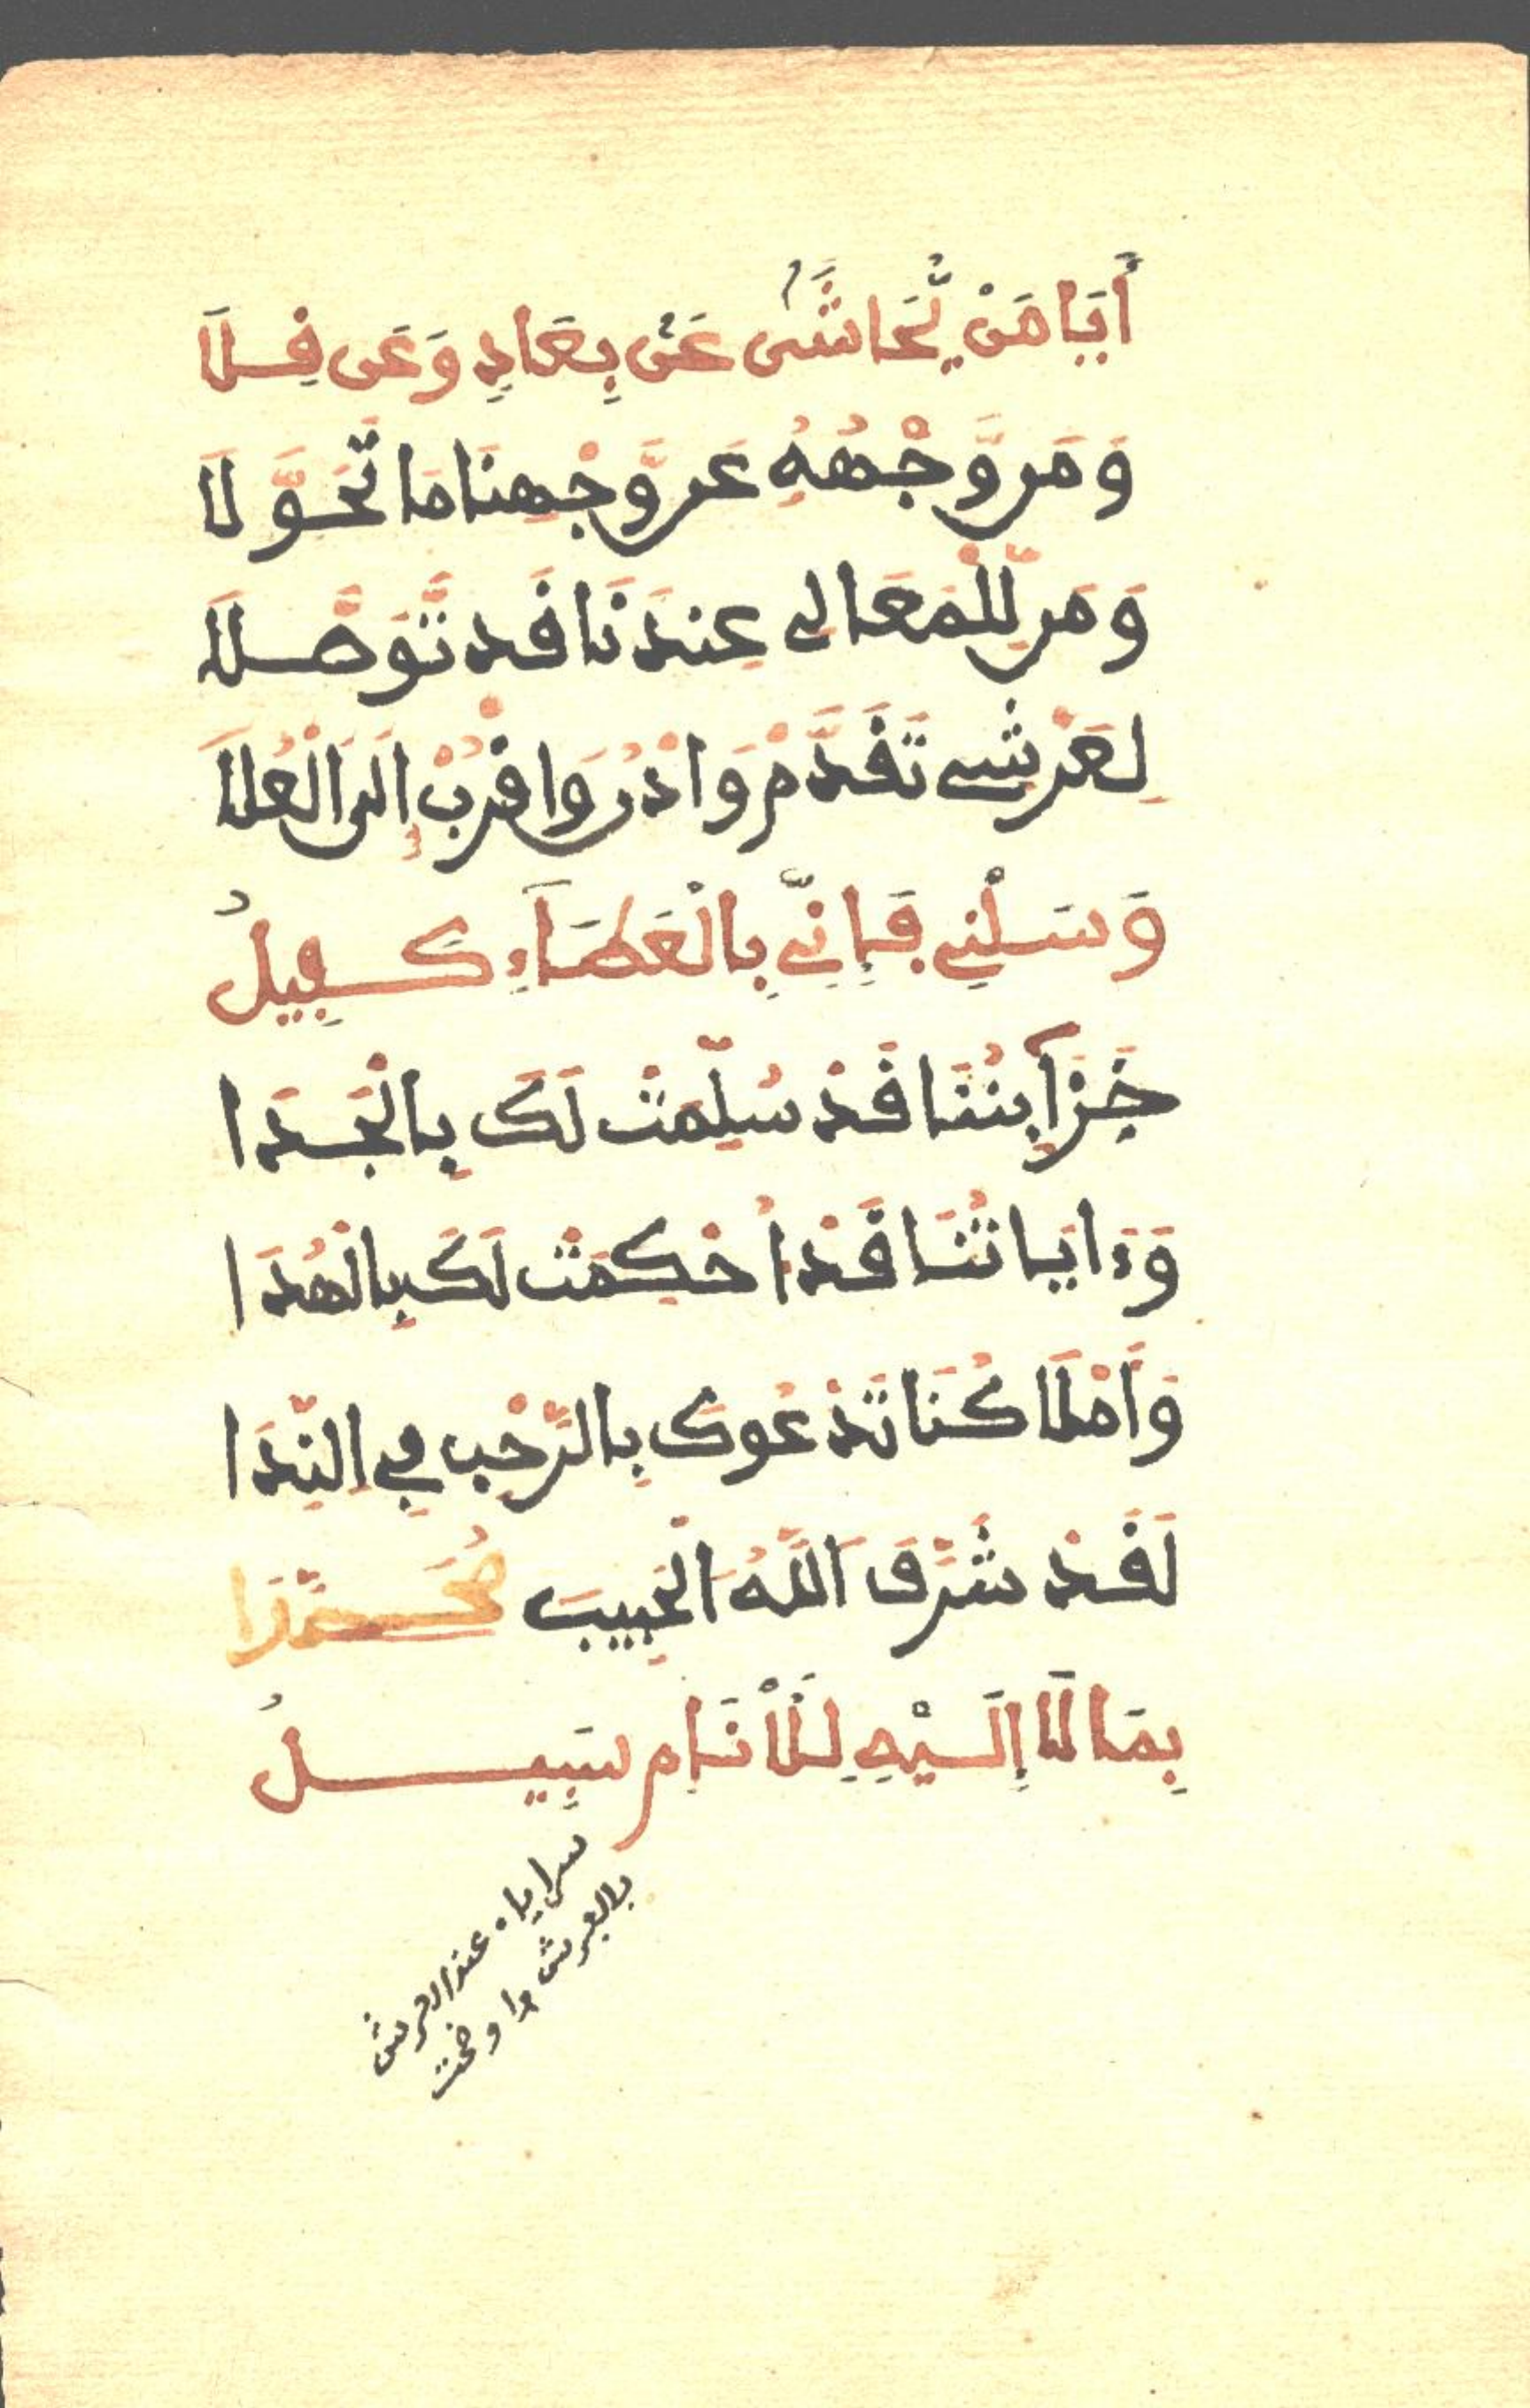 أَيَا مَنْ يُّحَاشَىٰ عَنْ بِعَادٍ وَعَن فِلَا
وَمَن وَّجْهُهُ عَن وَّجْهِنَا مَا تَحَوَّلَا
وَمَن لِّلْمَعَالِي عِنْدَنَا قَد تَّوَصَّلَا
لِعَرْشِي تَقَدَّمْ وَادْنُ وَاقْرُبْ إِلَى الْعُلَا
وَسَلْنِي فَإِنِّي بِالْعَطَاءِ كَفِيلُ
خَزَآئِنُنَا قَدْ سُلِّمَتْ لَكَ بِالْجَدَا
وَءَايَاتُنَا قَدْ أُحْكِمَتْ لَكَ بِالْهُدَا
وَأَمْلَاكُنَا تَدْعُوكَ بِالرَّحْبِ فِي النِّدَا
لَقَدْ شَرَّفَ اللَّهُ الْحَبِيبَ مُحَمَّدًا
بِمَا لَا إِلَيْهِ لِلْأَنَامِ سَبِيلُ
سراياه عند العرش
بالعرش وا وضحت